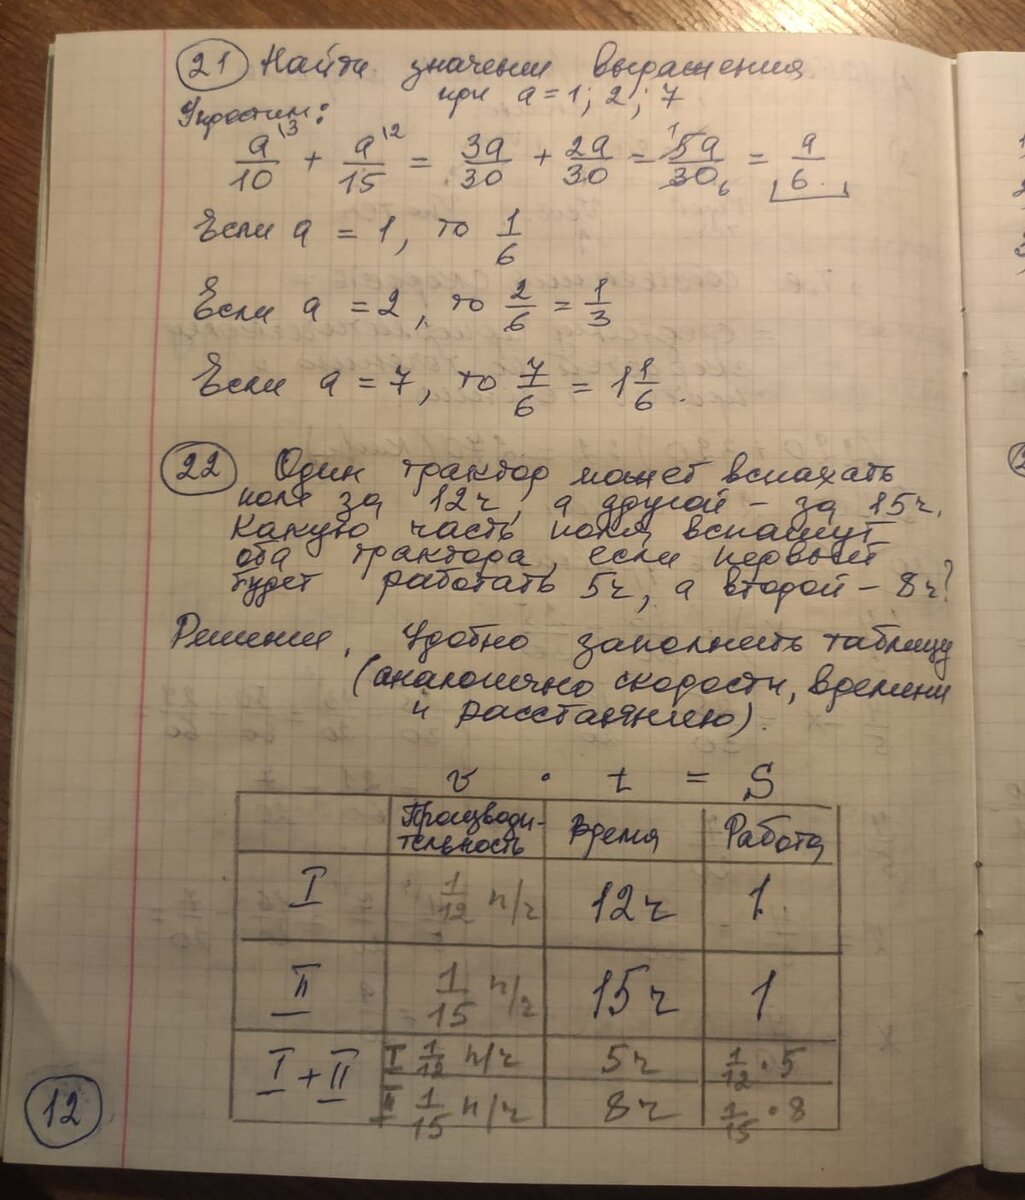 21 Найти значении выражения
при a = 1; 2; 7
Упростим:
a/10 \3 + a/15 \2 = 3a/30 + 2a/30 = 5a/30 1 6 = a/6.
Если a = 1, то 1/6
Если a = 2, то 2/6 = 1/3
Если a = 7, то 7/6 = 1 1/6.
22 Один трактор может вспахать
поле за 12ч, а другой – за 15ч.
Какую часть поля вспашут
оба трактора, если первый
будет работать 5ч, а второй – 8ч?
Решение. Удобно заполнить таблицу
(аналогично скорости, времени
и расстоянию).
v · t = S
Производительность Время Работа
I 1/12 п/ч 12ч 1
II 1/15 п/ч 15ч 1
I + II I 1/12 п/ч 5ч 1/12 · 5
II 1/15 п/ч 8ч 1/15 · 8
12